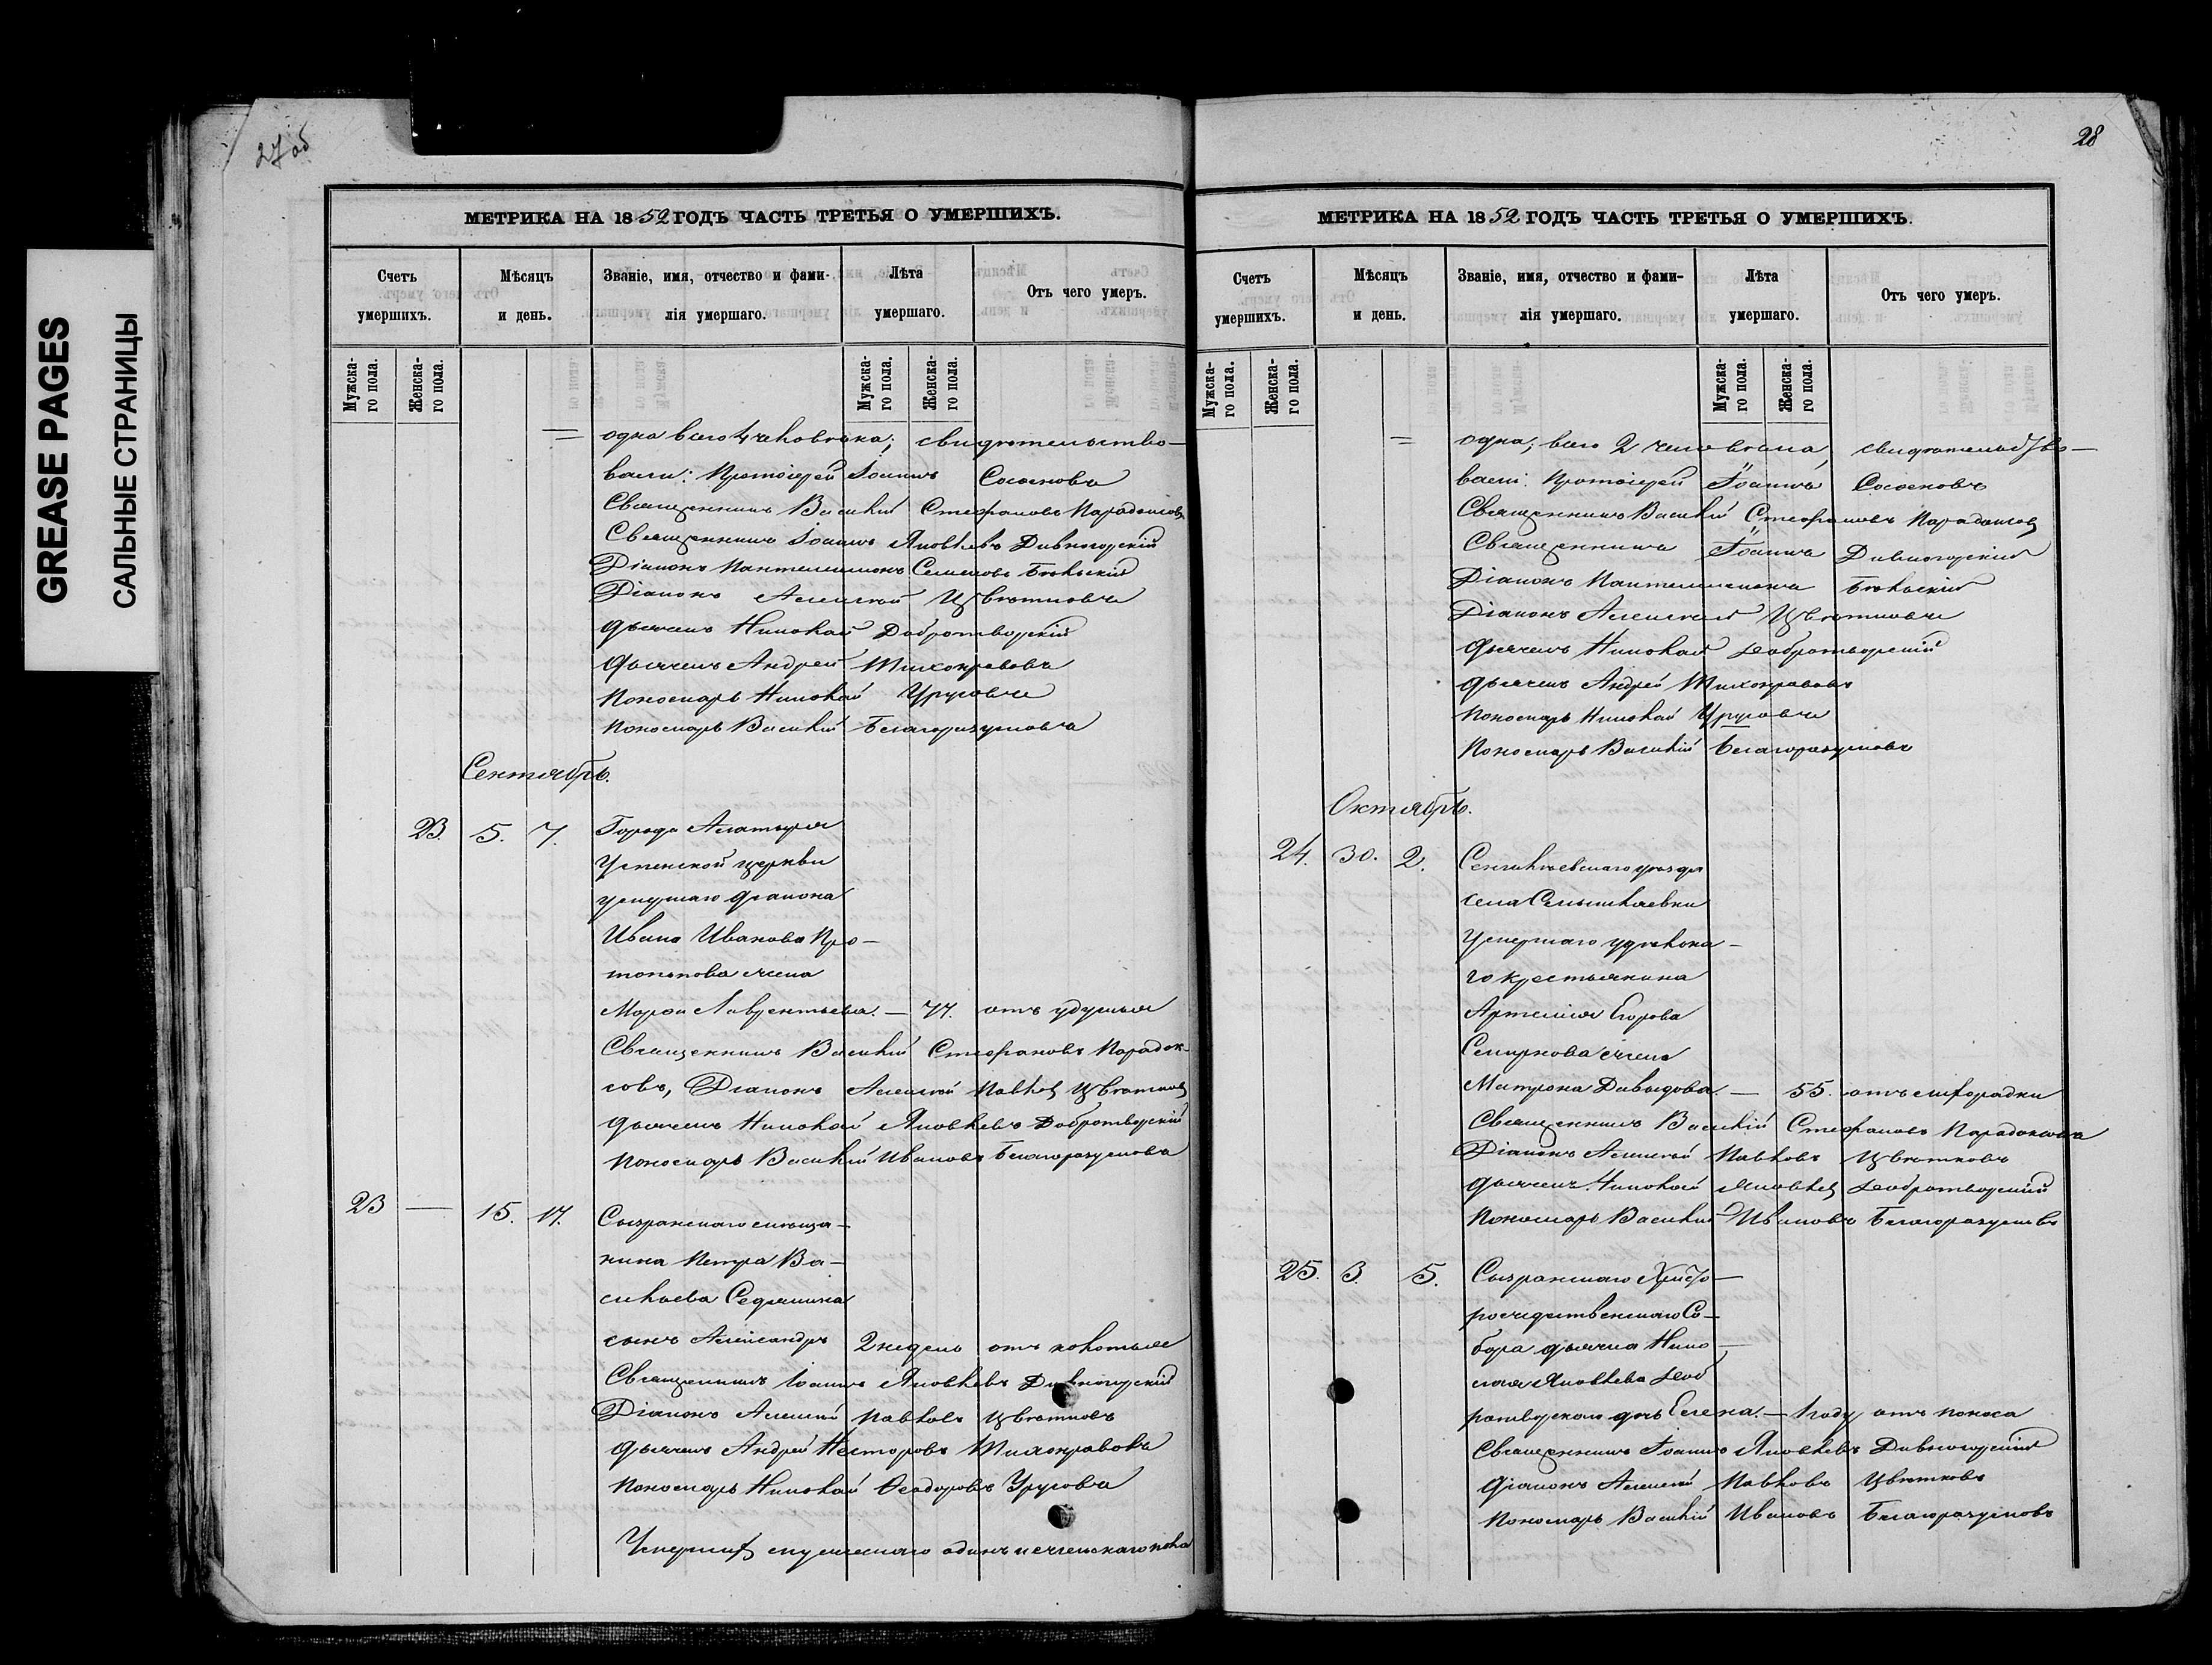 GREASE PAGES
САЛЬНЫЕ СТРАНИЦЫ
27об
МЕТРИКА НА 1852 ГОДЪ ЧАСТЬ ТРЕТЬЯ О УМЕРШИХЪ.
Счетъ умершихъ.
Мѣсяцъ и день.
Званіе, имя, отчество и фами-
лія умершаго.
Лѣта умершаго.
Отъ чего умеръ.
Мужска-
го пола.
Женска-
го пола.
Мужска-
го пола.
Женска-
го пола.
одна всего 4 человѣка; свидѣтельство-
вали: Протоіерей Іоаннъ Сосновъ
Священникъ Василій Стефановъ Парадоксовъ
Священникъ Іоаннъ Яковлевъ Дивногорскій
Діаконъ Пантелеимонъ Семеновъ Бѣльскій
Діаконъ Алексѣй Цвѣтковъ
Дьячекъ Николай Добротворскій
Дьячекъ Андрей Тихонравовъ
Пономарь Николай Урусовъ
Пономарь Василій Благоразумовъ
Сентябрь.
23. 5. 7. Города Алатыря
Успенской церкви
умершаго діакона
Ивана Иванова Про-
топопова жена
Марѳа Лаврентьева. — 77. отъ удушья
Священникъ Василій Стефановъ Парадок-
совъ, Діаконъ Алексѣй Павловъ Цвѣтковъ
Дьячекъ Николай Яковлевъ Добротворскій
Пономарь Василій Ивановъ Благоразумовъ
23 — 15. 17. Сызранскаго мѣща-
нина Петра Ва-
сильева Седякина
сынъ Александръ 2 недель отъ колотья
Священникъ Іоаннъ Яковлевъ Дивногорскій
Діаконъ Алексѣй Павловъ Цвѣтковъ
Дьячекъ Андрей Несторовъ Тихонравовъ
Пономарь Николай Ѳеодоровъ Урусовъ
Умершихъ мужескаго одинъ и женскаго пола
28
МЕТРИКА НА 1852 ГОДЪ ЧАСТЬ ТРЕТЬЯ О УМЕРШИХЪ.
Счетъ умершихъ.
Мѣсяцъ и день.
Званіе, имя, отчество и фами-
лія умершаго.
Лѣта умершаго.
Отъ чего умеръ.
Мужска-
го пола.
Женска-
го пола.
Мужска-
го пола.
Женска-
го пола.
одна; всего 2 человѣка, свидѣтельство-
вали: Протоіерей Іоаннъ Сосновъ
Священникъ Василій Стефановъ Парадоксовъ
Священникъ Іоаннъ Дивногорскій
Діаконъ Пантелеимонъ Бѣльскій
Діаконъ Алексѣй Цвѣтковъ
Дьячекъ Николай Добротворскій
Дьячекъ Андрей Тихонравовъ
Пономарь Николай Урусовъ
Пономарь Василій Благоразумовъ
Октябрь.
24. 30. 2. Сенгилѣевскаго уѣзда
села
Умершаго удѣльна-
го крестьянина
Артемія Егорова
Смирнова жена
Матрона Давыдова — 55. отъ лихорадки
Священникъ Василій Стефановъ Парадоксовъ
Діаконъ Алексѣй Павловъ Цвѣтковъ
Дьячекъ Николай Яковлевъ Добротворскій
Пономарь Василій Ивановъ Благоразумовъ
25. 3. 5. Сызранскаго Христо-
рождественскаго Со-
бора дьячка Нико-
лая Яковлева Доб
ротворскаго дочь Елена. — 1 году отъ поноса
Священникъ Іоаннъ Яковлевъ Дивногорскій
Діаконъ Алексѣй Павловъ Цвѣтковъ
Пономарь Василій Ивановъ Благоразумовъ